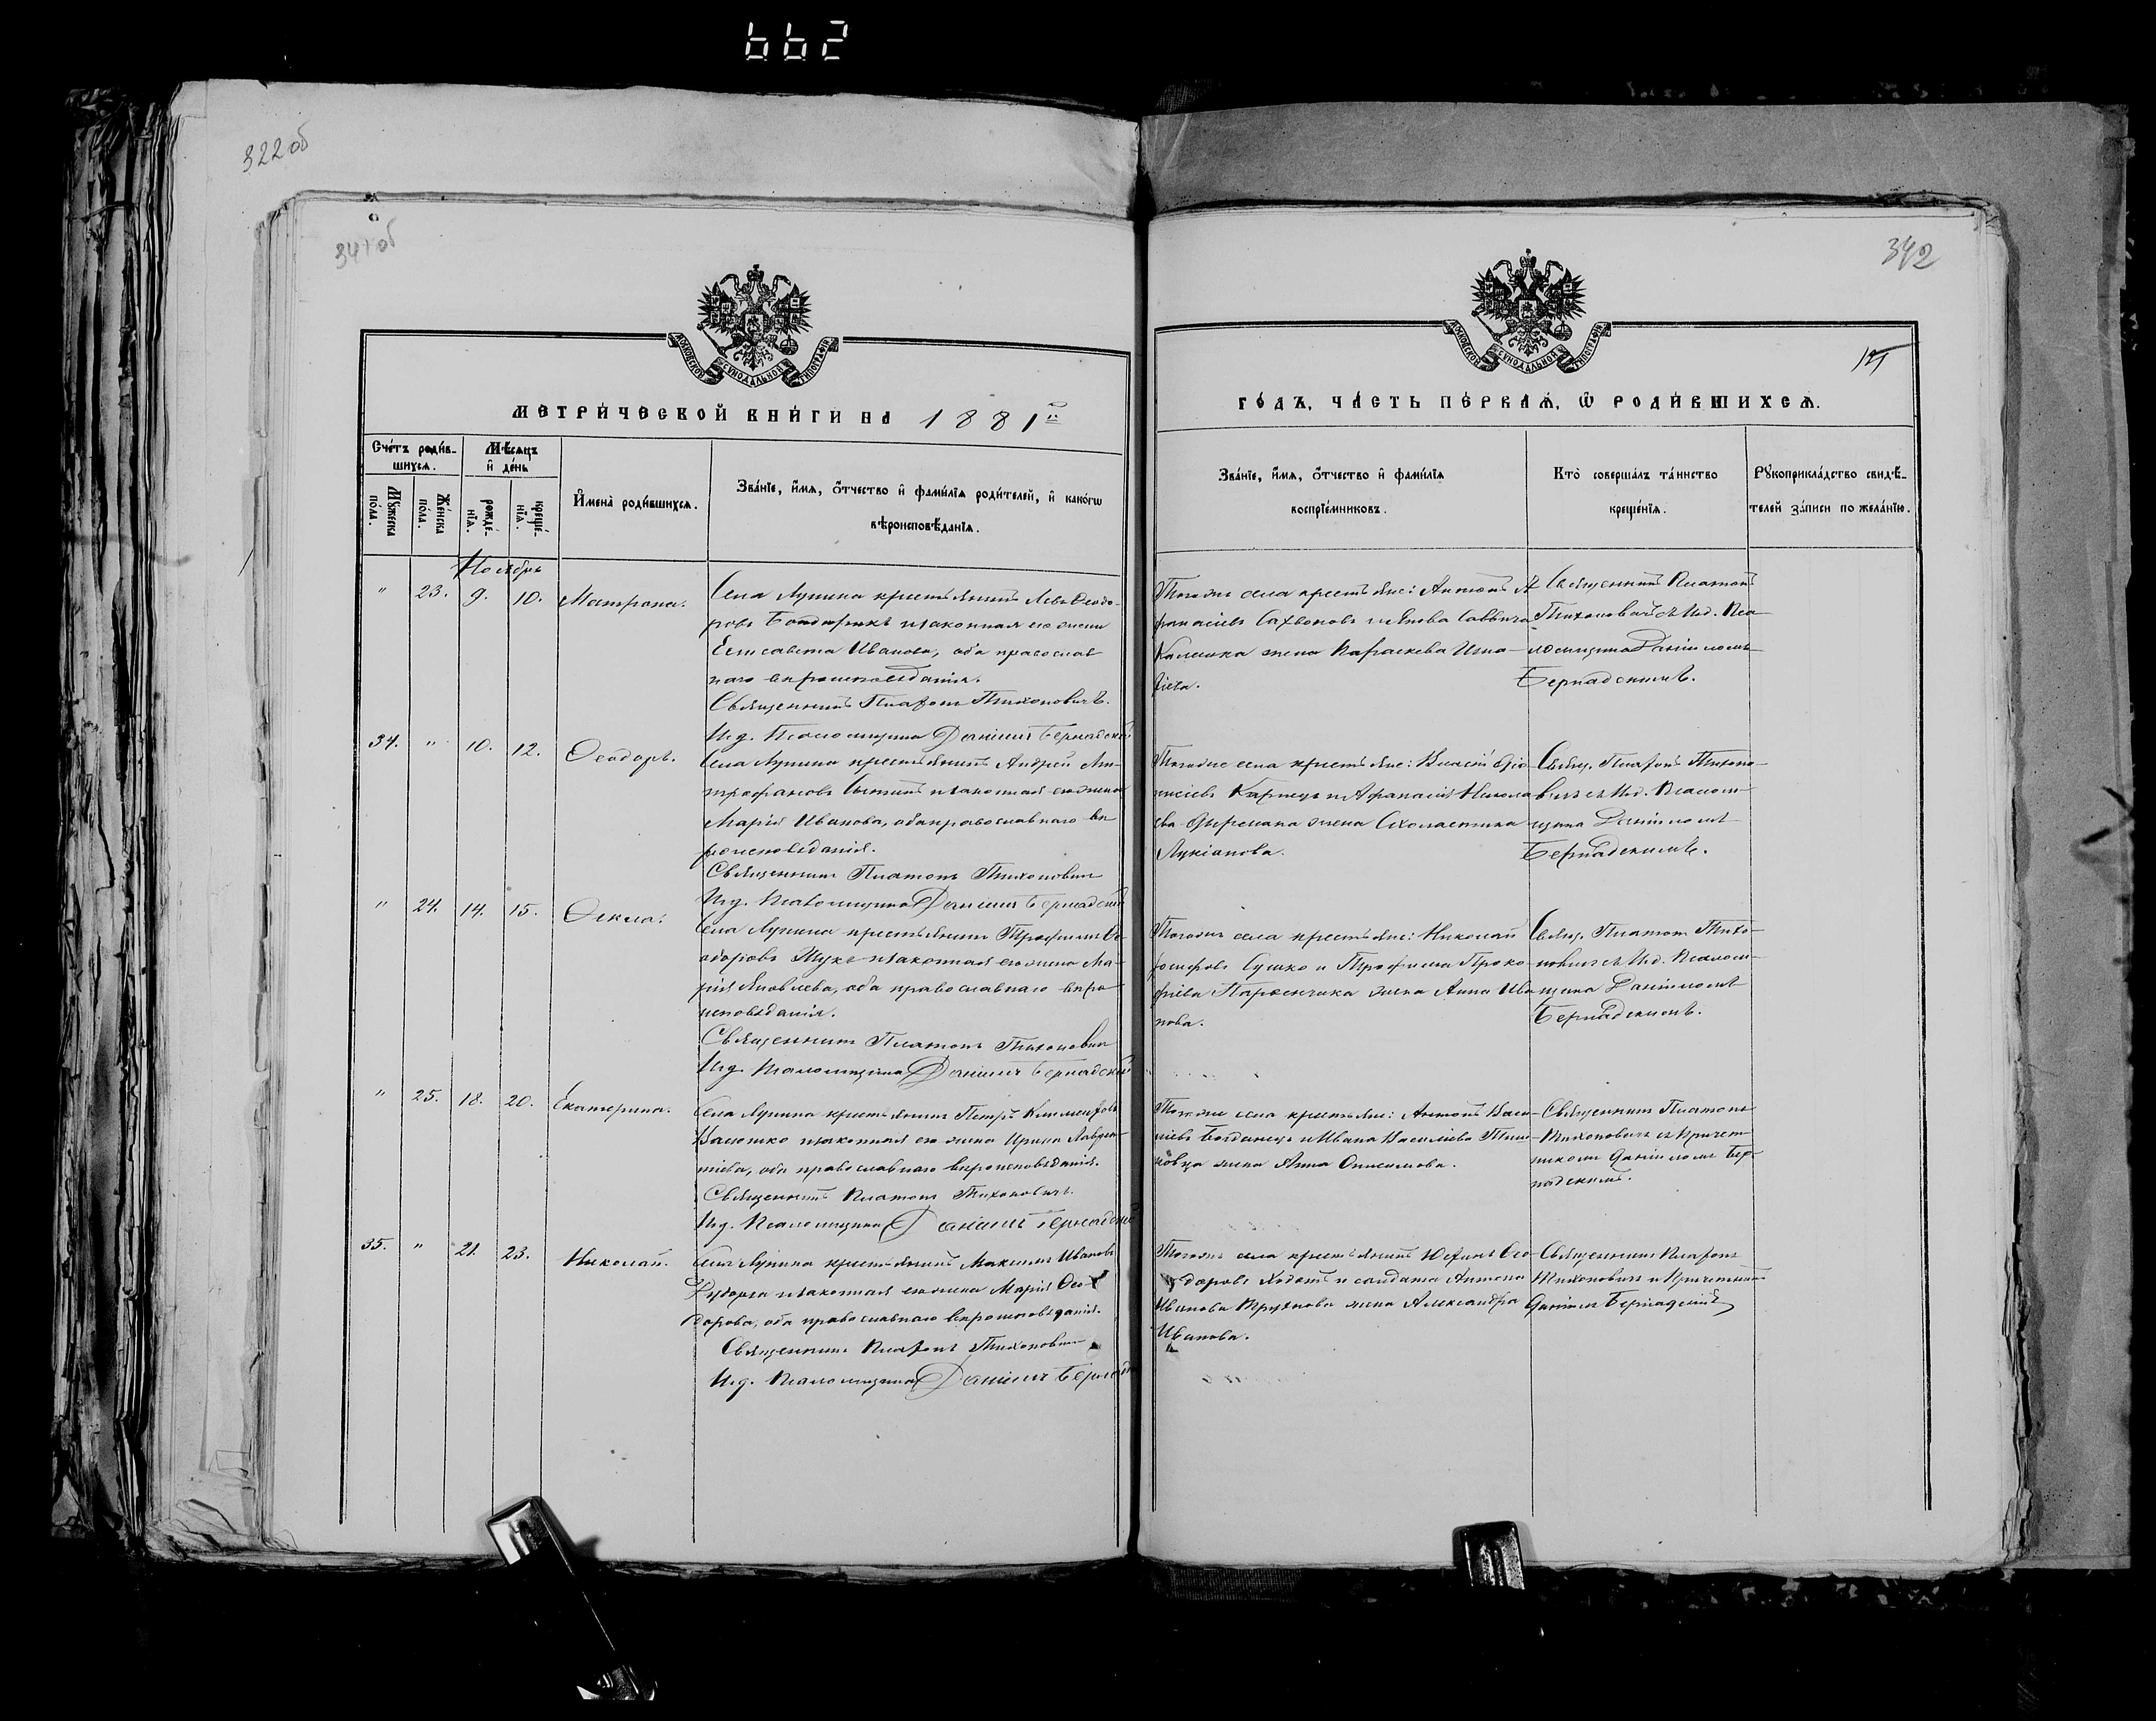 662
322 об
341 об
342
МОСКОВСКОЙ СѴНОДАЛЬНОЙ ТИПОГРАФІИ
МОСКОВСКОЙ СѴНОДАЛЬНОЙ ТИПОГРАФІИ
МЕТРИ́ЧЕСКОЙ КНИ́ГИ НА 1881 й
ГО́ДЪ, ЧА́СТЬ ПЕ́РВАЯ, Ѡ РОДИ́ВШИХСЯ.
Сче́тъ роди́в-
шихся.
Мѣсяцъ
и де́нь
Мꙋжеска
по́ла.
Же́нска
по́ла.
рожде́-
нїя.
креще́-
нїя.
Имена̀ роди́вшихся.
Зва́нїе, и́мя, о́тчество и фами́лїя роди́телей, и како́гѡ
вѣроисповѣ́данїя.
Зва́нїе, и́мя, о́тчество и фами́лїя
воспрїе́мниковъ.
Кто̀ соверша́лъ та́инство
креще́нїя.
Рꙋкоприкла́дство свидѣ́-
телей за́писи по жела́нїю.
Ноябрь
" 23. 9. 10. Матрона.
Села Лунина крестьянинъ Левъ Ѳеодо-
ровъ и законная его жена
Елисавета Иванова, оба православ
наго вѣроисповѣданія.
Священникъ Платонъ Тихоновичъ.
Ид. Псаломщика Даніилъ Бернадскій
Тогоже села крестьяне: Антонъ А
фанасіевъ Сахвоновъ и Якова Саввича
жена Параскева Игна-
тіева.
Священникъ Платонъ
Тихоновичъ съ Ид. Пса-
ломщика Даніиломъ
Бернадскимъ.
34. " 10. 12. Ѳеодоръ.
Села Лунина крестьянинъ Андрей Ми-
трофановъ и законная его жена
Марія Иванова, оба православнаго вѣ
роисповѣданія.
Священникъ Платонъ Тихоновичъ
Ид. Псаломщика Даніилъ Бернадскій
Тогоже села крестьяне: Власій Діо-
нисіевъ Карпецъ и Афанасія Никола
ева жена Схоластика
Лукіанова.
Священ. Платонъ Тихоно-
вичъ съ Ид. Псалом-
щика Даніиломъ
Бернадскимъ.
" 24. 14. 15. Ѳекла.
Села Лунина крестьянинъ Трофимъ Ѳе-
одоровъ Шукъ и законная его жена Ма-
рія Яковлева, оба православнаго вѣро
исповѣданія.
Священникъ Платонъ Тихоновичъ
Ид. Псаломщика Даніилъ Бернадскій
Тогоже села крестьяне: Николай
Сушко и Трофима Проко-
фіева жена Анна Ива
нова.
Священ. Платонъ Тихо-
новичъ съ Ид. Псалом-
щика Даніиломъ
Бернадскимъ.
" 25. 18. 20. Екатерина.
Села Лунина крестьянинъ Петръ Климентовъ
и законная его жена Ирина Лаврен-
тіева, оба православнаго вѣроисповѣданія.
Священникъ Платонъ Тихоновичъ.
Ид. Псаломщика Даніилъ Бернадскій
Тогоже села крестьяне: Антонъ Васи-
ліевъ Богданецъ и Ивана Василіева
жена Анна Онисимова.
Священникъ Платонъ
Тихоновичъ съ Причет
никомъ Даніиломъ Бер-
надскимъ.
35. " 21. 23. Николай.
Села Лунина крестьянинъ Максимъ Ивановъ
и законная его жена Марія Ѳео
дорова, оба православнаго вѣроисповѣданія.
Священникъ Платонъ Тихоновичъ
Ид. Псаломщика Даніилъ Бернадскій
Тогоже села крестьянинъ Ѳео-
доровъ и солдата Антона
Иванова жена Александра
Иванова.
Священникъ Платонъ
Тихоновичъ и Причетникъ
Даніилъ Бернадскій